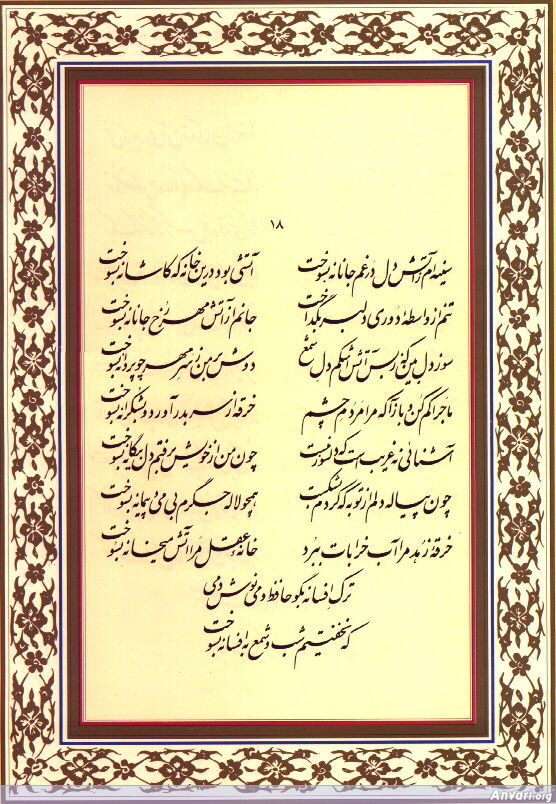 ۱۸
سینه‌ام ز آتش دل در غم جانانه بسوخت آتشی بود درین خانه که کاشانه بسوخت
تنم از واسطهٔ دوری دلبر بگداخت جانم از آتش مهر رخ جانانه بسوخت
سوز دل بین که ز بس آتش اشکم دل شمع دوش بر من ز سر مهر چو پروانه بسوخت
ماجرا کم کن و بازآ که مرا مردم چشم خرقه از سر بدر آورد و بشکرانه بسوخت
آشنائی نه غریب است که دلسوز منست چون من از خویش برفتم دل بیگانه بسوخت
چون پیاله دلم از توبه که کردم بشکست همچو لاله جگرم بی می و پیمانه بسوخت
خرقهٔ زهد مرا آب خرابات ببرد خانهٔ عقل مرا آتش میخانه بسوخت
ترک افسانه بگو حافظ و می نوش دمی
که نخفتیم شب و شمع به افسانه بسوخت
Anvari.org